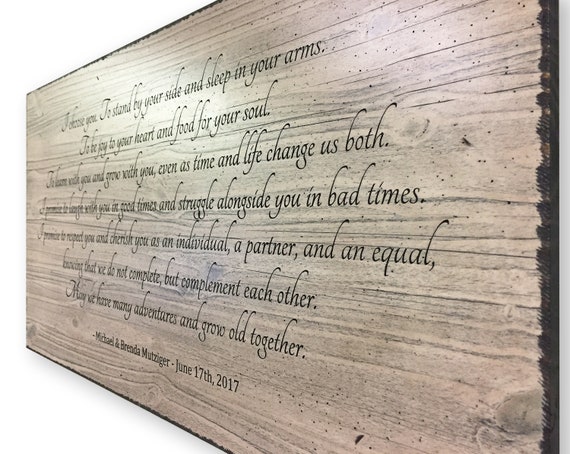 I choose you. To stand by your side and sleep in your arms.
To be joy to your heart and food for your soul.
To learn with you and grow with you, even as time and life change us both.
I promise to laugh with you in good times and struggle alongside you in bad times.
I promise to respect you and cherish you as an individual, a partner, and an equal,
knowing that we do not complete, but complement each other.
May we have many adventures and grow old together.
- Michael & Brenda Mutziger - June 17th, 2017